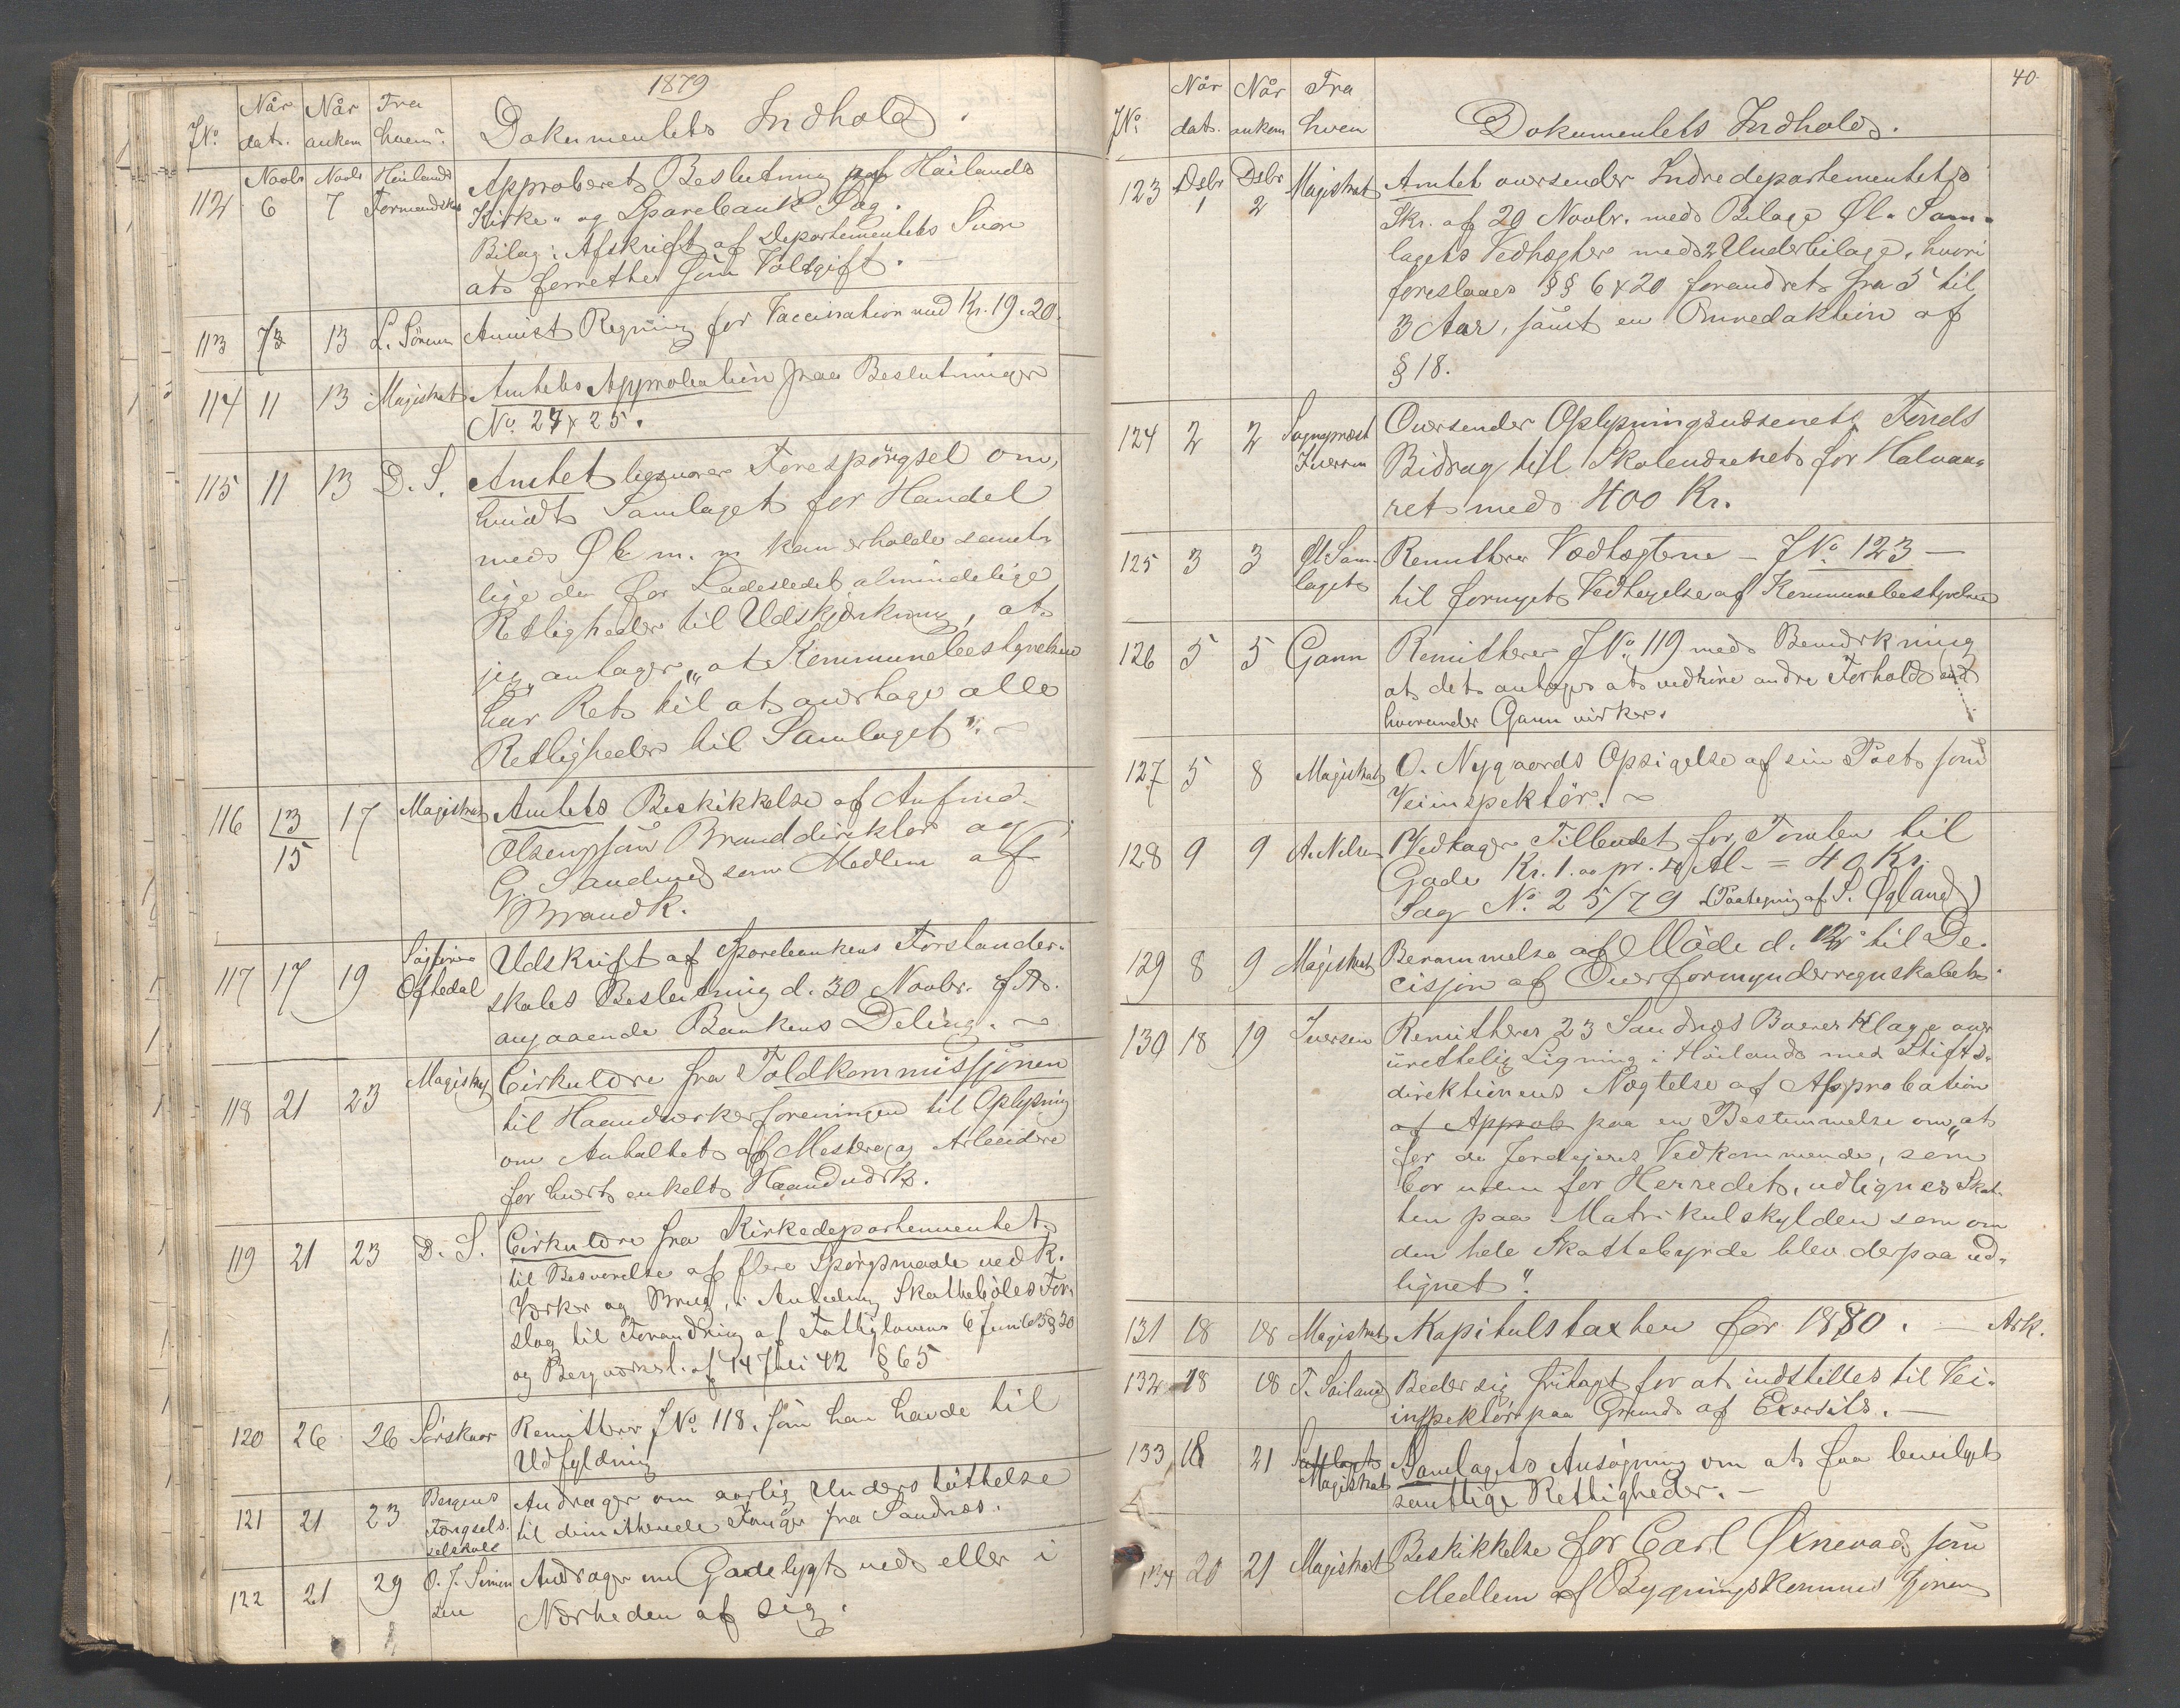 1879
JNo. Når dat. Når ankom Fra hvem? Dokumentets Indhold.
112 Novbr 6 Novbr 7 Höilands Formandsk. Approberet Beslutning paa Höilands
Kirke- og Sparebank Sag.
Bilag: Afskrift af Departementets Svar
ats forrettes som Voldgift.
113 13 L. Sörum Anvist Regning for Vaccination med Kr. 19.20.
114 11 13 Magistrat Amtets Approbation paa Beslutninger
No. 24 & 25.
115 11 13 D. S. Amtet besvarer Forespörgsel om,
hvidt Samlaget for Handel
med Øl m. m kan erholde samt-
lige de for Ladestedet almindelige
Rettigheder til Udskjænkning, at
jeg antager, "at Kommunebestyrelsen
har Ret til at overtage alle
Rettigheder til Samlaget".
116 13/15 17 Magistrat Amtets Beskikkelse af
Olsen som Branddirektör og
G. Sandved som Medlem af
Brandk.
117 17 19 Oftedal Udskrift af Sparebankens Forstander-
skabs Beslutning d. 30 Novbr. f. A.
angaaende Bankens Deling.
118 21 23 Magistrat Cirkulære fra Toldkommissjonen
til Haandværkerforeningen til Oplysning
om Antallet af Mestere og Arbeidere
for hvert enkelt Haandværk.
119 21 23 D. S. Cirkulære fra Kirkedepartementet
til Besvarelse af flere Spörgsmaale ved K.
Værker og Brug, i Anledning Skattelovens For-
slag til Forandring af Fattiglovens 6 Juni 63 § 30
og Bergværksl. af 14 Juli 42 § 65
120 26 26 Sörskaar Remitterer JNo. 118, som han havde til
Udfyldning
121 21 23 Bergens Fængsels- selskab Andrager om aarlig Understöttelse
til dimitterede Fanger fra Sandnæs.
122 21 29 O. J. Simonsen Andrager om Gadelygt ved eller i
Nærheden af sig.
40
JNo. Når dat. Når ankom Fra hvem Dokumentets Indhold.
123 Dsbr 1 Dsbr 2 Magistrat Amtet oversender Indredepartementets
Skr. af 29 Novbr. med Bilage Øl-Sam-
lagets Vedtægter med 2 Underbilage, hvori
foreslaaes §§ 6 & 20 forandret fra 5 til
3 Aar, samt en Omredaktion af
§ 18.
124 2 2 Sogneprest Iversen Oversender Oplysningsvæsenets Fonds
Bidrag til Skolevæsenet for Halvaa-
ret med 400 Kr.
125 3 3 Øl Sam- laget Remitterer Vedtægterne – JNo. 123 –
til fornyet Vedtagelse af Kommunebestyrelsen
126 5 5 Gann Remitterer JNo. 119 med Bemærkning
at det antages at vedröre andre Forhold end
hvorunder Gann virker.
127 5 8 Magistrat O. Nygaards Opsigelse af sin Post som
Veiinspektör.
128 9 9 A. Nilsen Vedtager Tilbudet for Tomten til
Gade Kr. 1.00 pr. Al. = 40 Kr.
Sag No. 25/79 (Paategning af S. Øgland)
129 8 9 Magistrat Berammelse af Möde d. 12 til De-
cisjon af Overformynderregnskabet.
130 18 19 Iversen Remitterer 23 Sandnæs Boeres Klage over
urettelig Ligning i Höiland med Stifts-
direktionens Nægtelse af Approbation
af Approb paa en Bestemmelse om, "at
for de Jordejeres Vedkommende, som
bor uden for Herredet, udlignes Skat-
ten paa Matrikulskylden som om
den hele Skattebyrde blev derpaa ud-
lignet".
131 18 18 Magistrat Kapitulstaxten for 1880. – Ark.
132 18 18 T. Soiland Beder sig fritaget for at indstilles til Vei-
inspektör paa Grund af Exersits. –
133 18 21 Samlaget Magistrat Samlagets Ansögning om at faa bevilget
samtlige Rettigheder. –
134 20 21 Magistrat Beskikkelse for Carl Øxnevad som
Medlem af Bygningskommissjonen